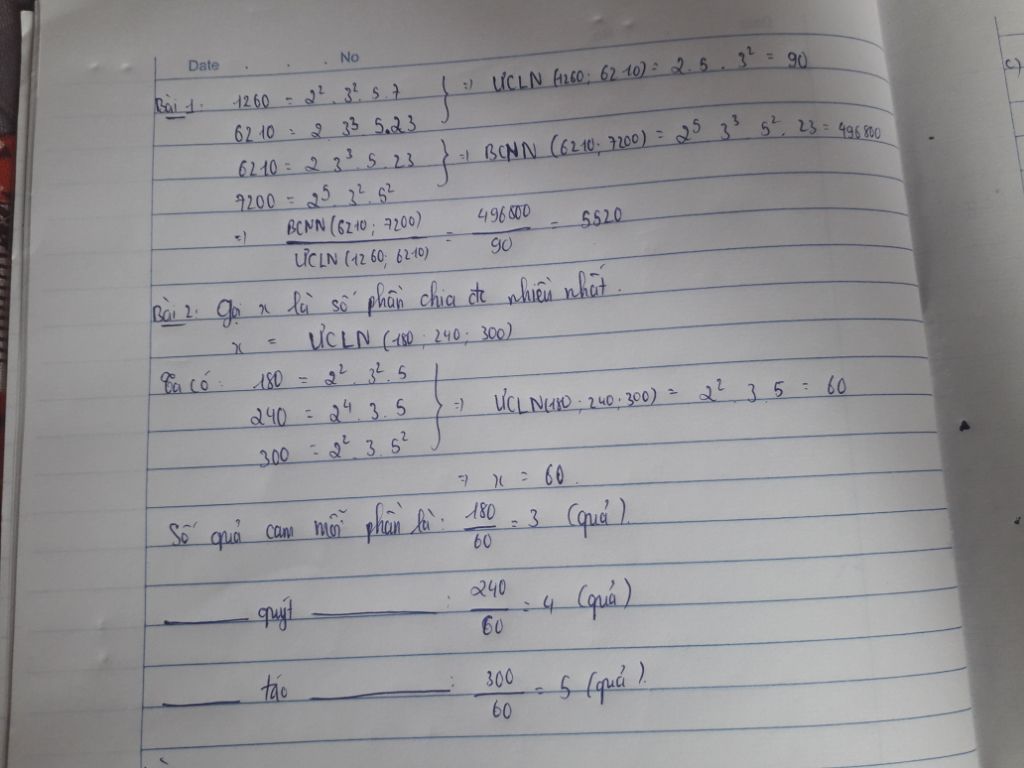 Date . . . No
Bài 1: 1260 = 2². 3². 5. 7 } => ƯCLN (1260; 6210) = 2. 5 . 3² = 90
6210 = 2 3³ 5.23
6210 = 2 3³ . 5 23 } => BCNN (6210; 7200) = 2⁵ 3³ 5². 23 = 496800
7200 = 2⁵. 3². 5²
=> BCNN (6210; 7200) / ƯCLN (1260; 6210) = 496800 / 90 = 5520
Bài 2: Gọi x là số phần chia đc nhiều nhất.
x = ƯCLN (180; 240; 300)
Ta có: 180 = 2². 3². 5
240 = 2⁴. 3. 5 } => ƯCLN(180; 240; 300) = 2². 3. 5 = 60
300 = 2². 3. 5²
=> x = 60.
Số quả cam mỗi phần là: 180 / 60 = 3 (quả).
____ quýt ____ : 240 / 60 = 4 (quả)
____ táo ____ : 300 / 60 = 5 (quả).
c)